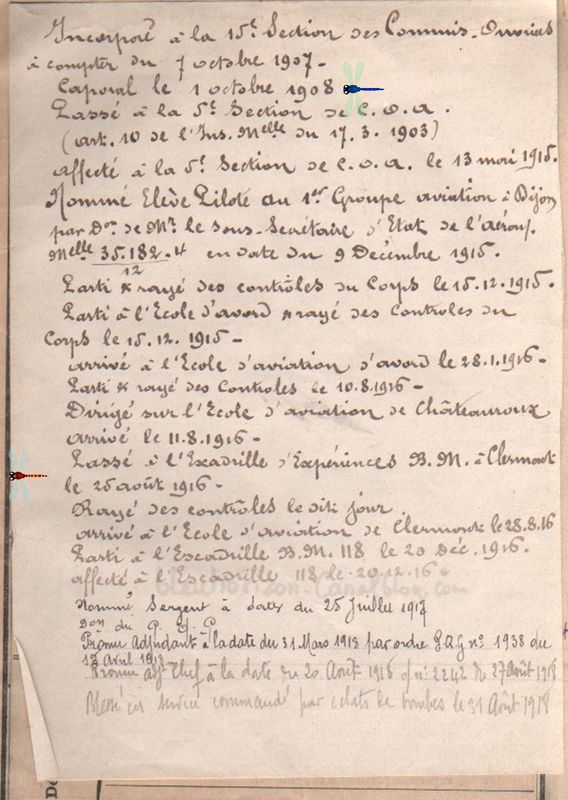 Incorporé à la 15e Section des Commis-Ouvriers
à compter du 7 octobre 1907-
Caporal le 1 octobre 1908
Passé à la 5e Section de C.O.A.
(art. 10 de l'Ins. Melle du 17.3.1903)
affecté à la 5e Section de C.O.A. le 13 mai 1915.
Nommé Elève Pilote au 1er Groupe aviation à Dijon
par Don de Mr. le Sous-Secrétaire d'Etat de l'aérau.
Melle 35.182.4 en date du 9 Décembre 1915.
12
Parti & rayé des contrôles du Corps le 15.12.1915.
Parti à l'Ecole d'avord & rayé des Controles du
Corps le 15.12.1915-
arrivé à l'Ecole d'aviation d'avord le 28.1.1916-
Parti & rayé des Controles le 10.8.1916-
Dirigé sur l'Ecole d'aviation de Châteauroux
arrivé le 11.8.1916-
Passé à l'Escadrille d'Expériences B.M. à Clermont
le 25 août 1916-
Rayé des contrôles le dit jour
arrivé à l'Ecole d'aviation de Clermont le 28.8.16
Parti à l'Escadrille B.M. 118 le 20 Déc. 1916.
affecté à l'Escadrille 118 le 20.12.16.
Nommé Sergent à dater du 25 Juillet 1917
Don du G.Q.G.
Promu Adjudant à la date du 31 Mars 1918 par ordre G.Q.G no 1938 du
12 avril 1918
Promu adjt Chef à la date du 20 Août 1918 of no 2242 du 27 Août 1918
Blessé en service commandé par éclats de bombes le 31 Août 1918